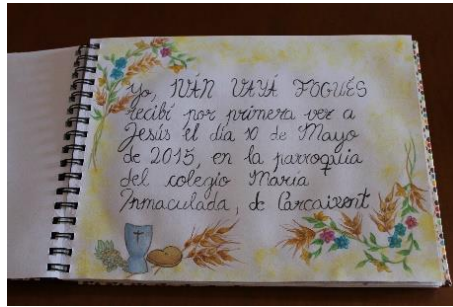 Yo, IVÁN VAYÁ FOGUÉS
recibí por primera vez a
Jesús el día 10 de Mayo
de 2015, en la parroquia
del colegio María
Inmaculada, de Carcaixent